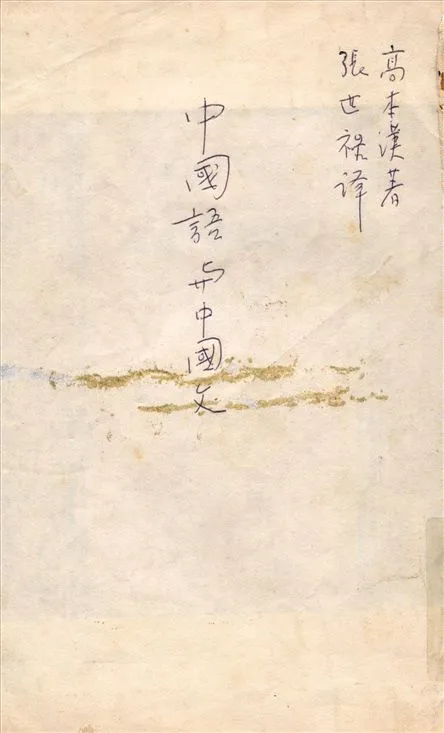 高本漢著
張世禄译
中國語与中國文